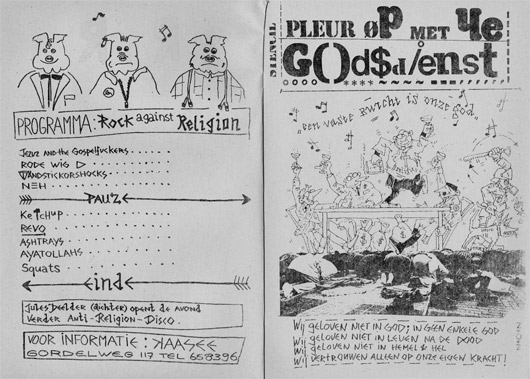 PROGRAMMA: Rock against Religion
Jezuz and the Gospelfuckers
RODE WIG
WANDSTICKORSHOCKS
NEH
PAUZ
Ketchup
REVO
ASHTRAYS
AYATOLLAHS
Squats
eind
Jules Deelder (dichter) opent de avond
Verder Anti-Religion-Disco.
VOOR INFORMATIE: KAASEE
GORDELWEG 117 TEL 658396
STENCIL
PLEUR OP MET JE
GOdsdienst
"een vaste burcht is onze god"
Wij geloven niet in God; in geen enkele god
Wij geloven niet in leven na de dood
Wij geloven niet in hemel & hel
Wij vertrouwen alleen op onze eigen kracht!